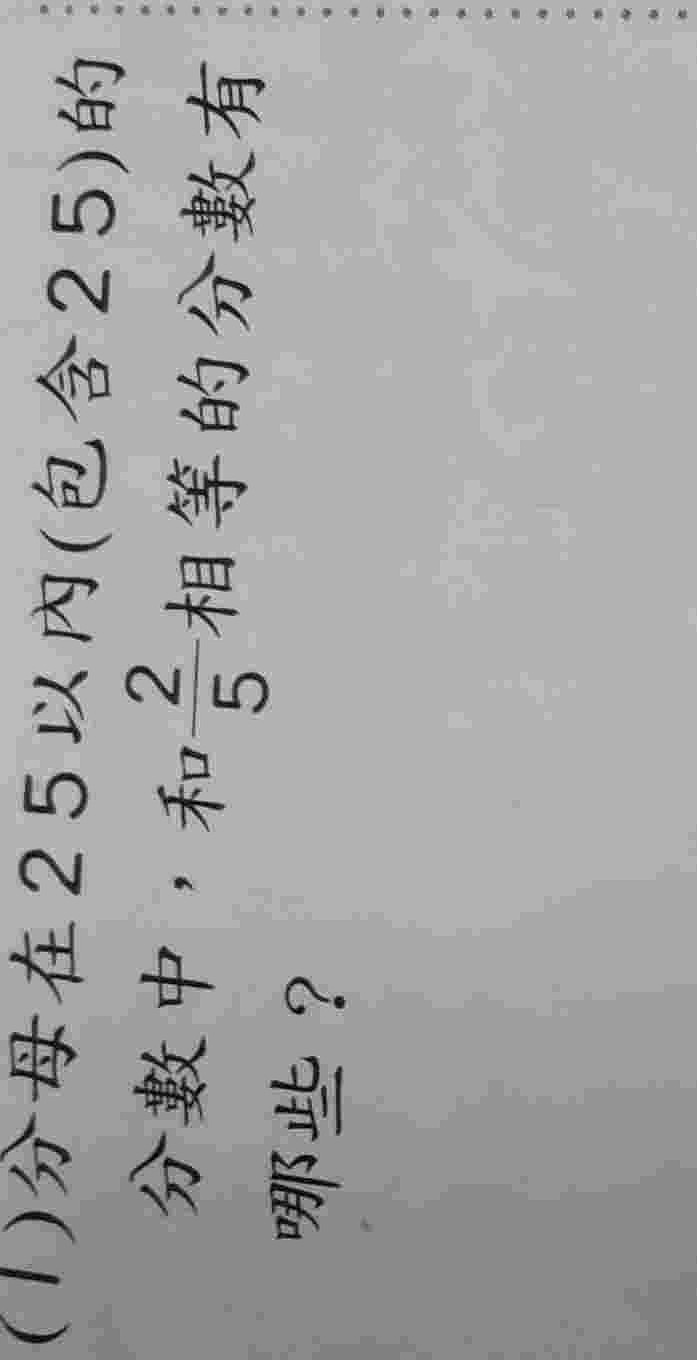 (1)分母在25以內(包含25)的
分數中，和2/5相等的分數有
哪些？